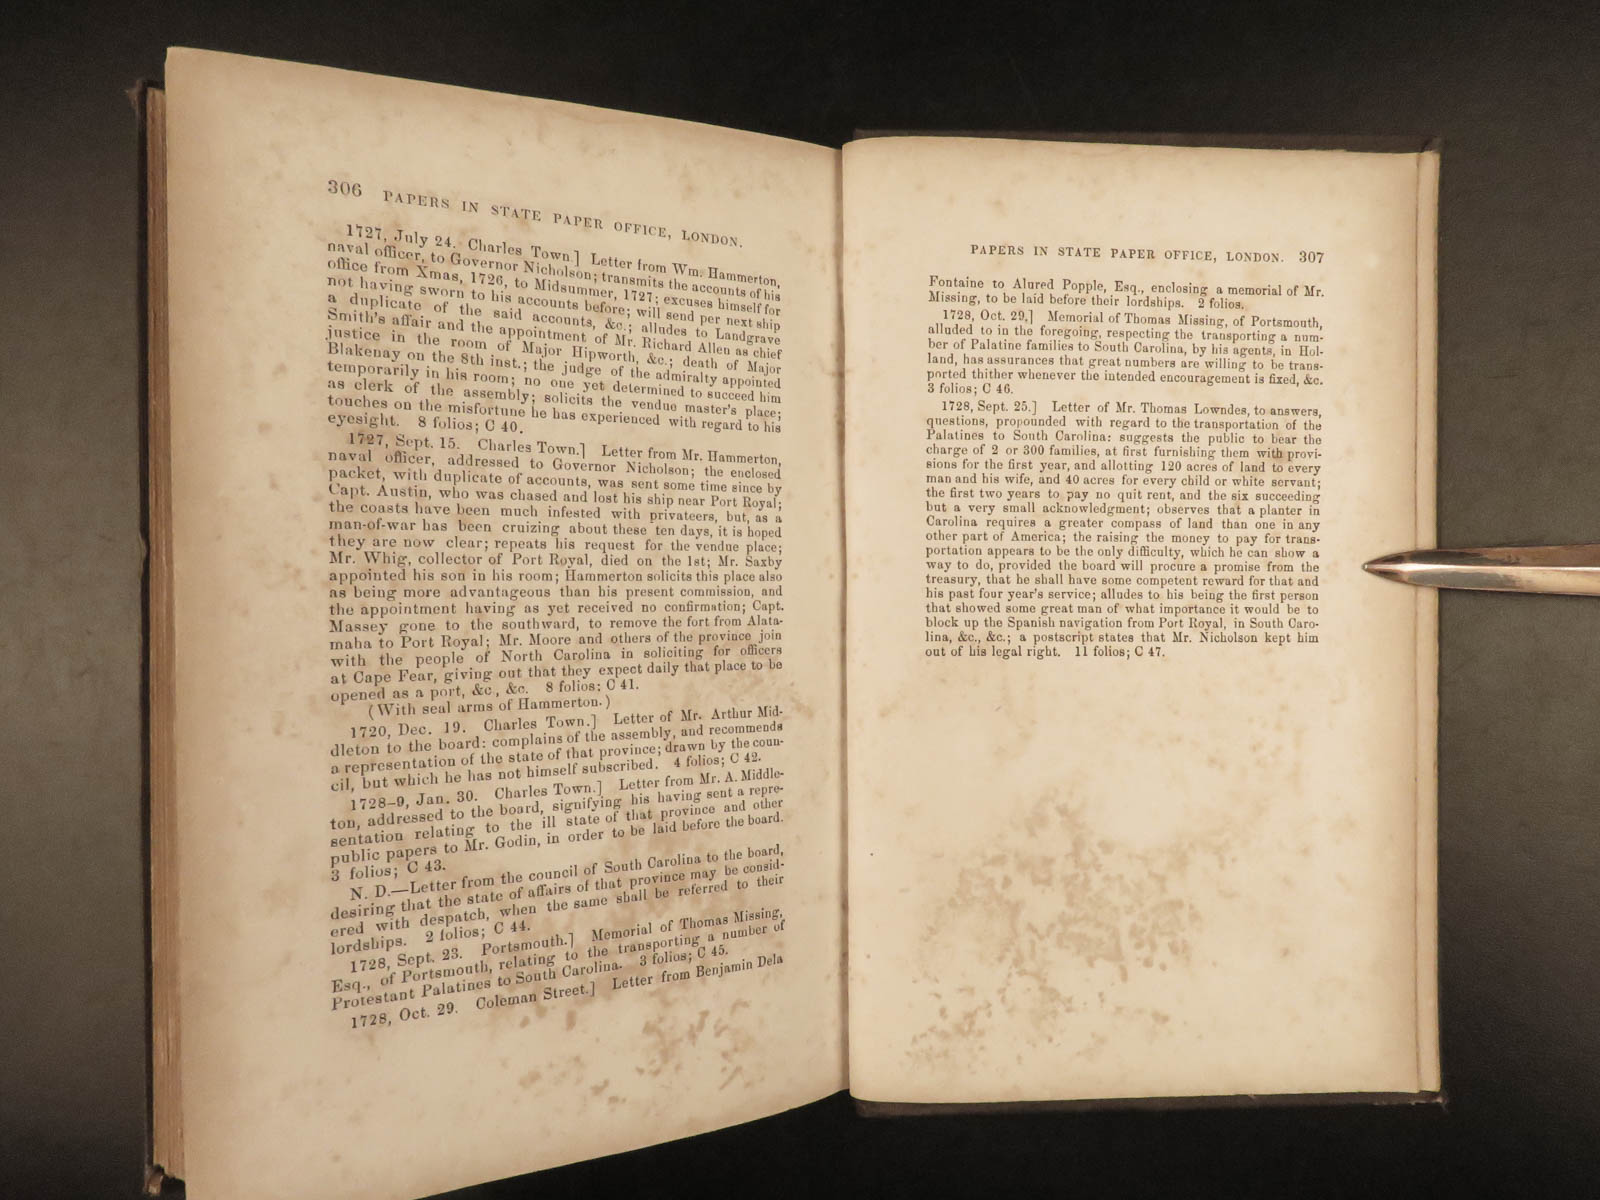 306 PAPERS IN STATE PAPER OFFICE, LONDON.
1727, July 24. Charles Town.] Letter from Wm. Hammerton,
naval officer, to Governor Nicholson; transmits the accounts of his
office from Xmas, 1726, to Midsummer, 1727; excuses himself for
not having sworn to his accounts before; will send per next ship
a duplicate of the said accounts, &c.; alludes to Landgrave
Smith's affair and the appointment of Mr. Richard Allen as chief
justice in the room of Major Hipworth, &c.; death of Major
Blakenay on the 8th inst.; the judge of the admiralty appointed
temporarily in his room; no one yet determined to succeed him
as clerk of the assembly; solicits the vendue master's place;
touches on the misfortune he has experienced with regard to his
eyesight. 8 folios; C 40.
1727, Sept. 15. Charles Town.] Letter from Mr. Hammerton,
naval officer, addressed to Governor Nicholson; the enclosed
packet, with duplicate of accounts, was sent some time since by
Capt. Austin, who was chased and lost his ship near Port Royal;
the coasts have been much infested with privateers, but, as a
man-of-war has been cruizing about these ten days, it is hoped
they are now clear; repeats his request for the vendue place;
Mr. Whig, collector of Port Royal, died on the 1st; Mr. Saxby
appointed his son in his room; Hammerton solicits this place also
as being more advantageous than his present commission, and
the appointment having as yet received no confirmation; Capt.
Massey gone to the southward, to remove the fort from Alata-
maha to Port Royal; Mr. Moore and others of the province join
with the people of North Carolina in soliciting for officers
at Cape Fear, giving out that they expect daily that place to be
opened as a port, &c., &c. 8 folios; C 41.
(With seal arms of Hammerton.)
1720, Dec. 19. Charles Town.] Letter of Mr. Arthur Mid-
dleton to the board: complains of the assembly, and recommends
a representation of the state of that province; drawn by the coun-
cil, but which he has not himself subscribed. 4 folios; C 42.
1728-9, Jan. 30. Charles Town.] Letter from Mr. A. Middle-
ton, addressed to the board, signifying his having sent a repre-
sentation relating to the ill state of that province and other
public papers to Mr. Godin, in order to be laid before the board.
3 folios; C 43.
N. D.—Letter from the council of South Carolina to the board,
desiring that the state of affairs of that province may be consid-
ered with despatch, when the same shall be referred to their
lordships. 2 folios; C 44.
1728, Sept. 23. Portsmouth.] Memorial of Thomas Missing,
Esq., of Portsmouth, relating to the transporting a number of
Protestant Palatines to South Carolina. 3 folios; C 45.
1728, Oct. 29. Coleman Street.] Letter from Benjamin Dela
PAPERS IN STATE PAPER OFFICE, LONDON. 307
Fontaine to Alured Popple, Esq., enclosing a memorial of Mr.
Missing, to be laid before their lordships. 2 folios.
1728, Oct. 29,] Memorial of Thomas Missing, of Portsmouth,
alluded to in the foregoing, respecting the transporting a num-
ber of Palatine families to South Carolina, by his agents, in Hol-
land, has assurances that great numbers are willing to be trans-
ported thither whenever the intended encouragement is fixed, &c.
3 folios; C 46.
1728, Sept. 25.] Letter of Mr. Thomas Lowndes, to answers,
questions, propounded with regard to the transportation of the
Palatines to South Carolina: suggests the public to bear the
charge of 2 or 300 families, at first furnishing them with provi-
sions for the first year, and allotting 120 acres of land to every
man and his wife, and 40 acres for every child or white servant;
the first two years to pay no quit rent, and the six succeeding
but a very small acknowledgment; observes that a planter in
Carolina requires a greater compass of land than one in any
other part of America; the raising the money to pay for trans-
portation appears to be the only difficulty, which he can show a
way to do, provided the board will procure a promise from the
treasury, that he shall have some competent reward for that and
his past four year's service; alludes to his being the first person
that showed some great man of what importance it would be to
block up the Spanish navigation from Port Royal, in South Caro-
lina, &c., &c.; a postscript states that Mr. Nicholson kept him
out of his legal right. 11 folios; C 47.